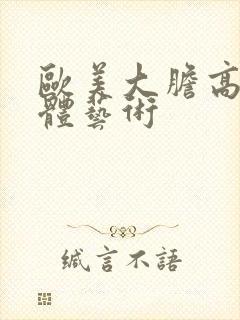 歐美大膽高
體藝術
缄言不語